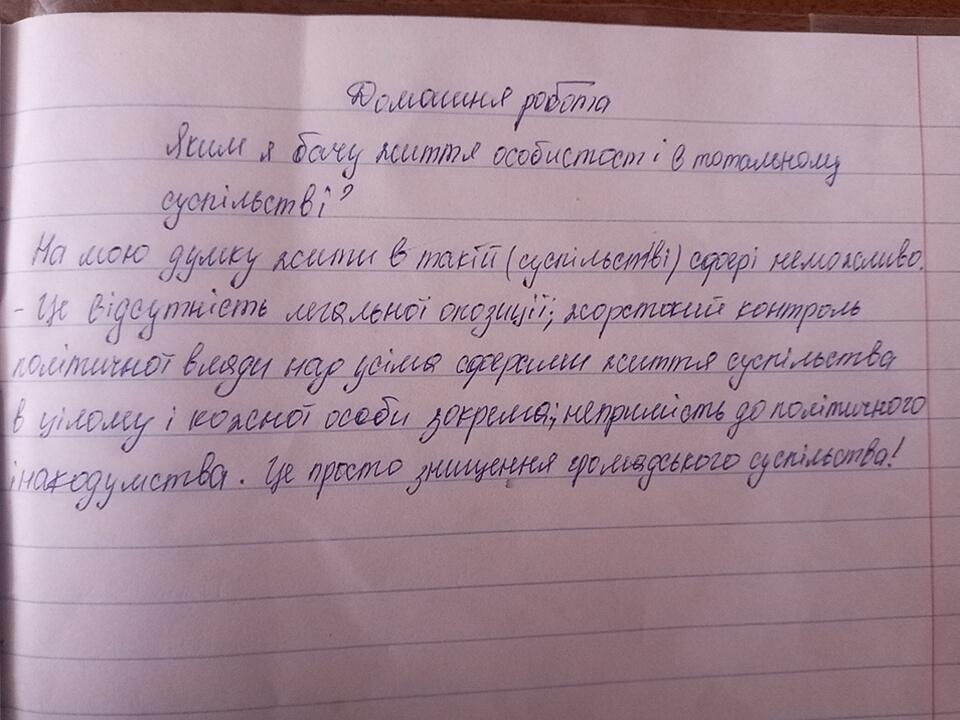 Домашня робота
Яким я бачу життя особистості в тотальному
суспільстві?
На мою думку жити в такій (суспільстві) сфері неможливо.
- Це відсутність легальної опозиції; жорсткий контроль
політичної влади над усіма сферами життя суспільства
в цілому і кожної особи зокрема; неприпність до політичного
інакодумства. Це просто знищення громадського суспільства!